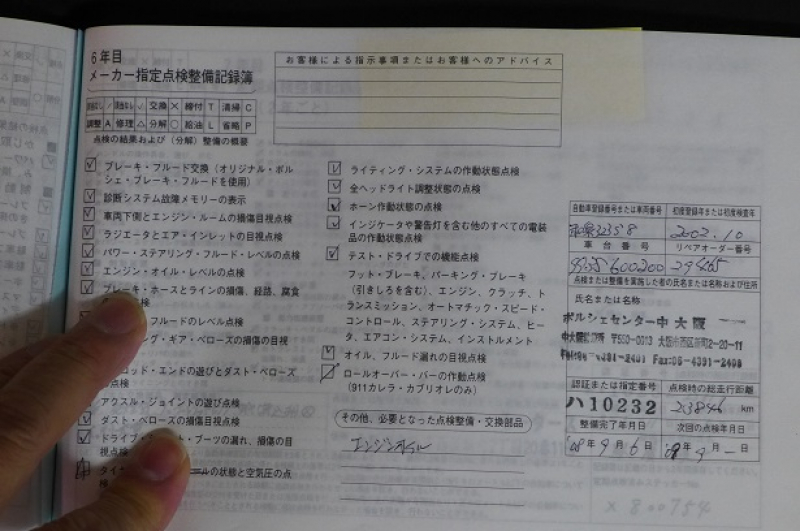 6年目
メーカー指定点検整備記録簿
交換 × 締付 T 清掃 C
調整 A 修理 △ 分解 ○ 給油 L 省略 P
点検の結果および(分解)整備の概要
ブレーキ・フルード交換(オリジナル・ポル
シェ・ブレーキ・フルードを使用)
診断システム故障メモリーの表示
車両下側とエンジン・ルームの損傷目視点検
ラジエータとエア・インレットの目視点検
パワー・ステアリング・フルード・レベルの点検
エンジン・オイル・レベルの点検
ブレーキ・ホースとラインの損傷、経路、腐食
点検
フルードのレベル点検
ング・ギア・ベローズの損傷の目視
ロッド・エンドの遊びとダスト・ベローズ
の点検
アクスル・ジョイントの遊び点検
ダスト・ベローズの損傷目視点検
ドライブ・シャフト・ブーツの漏れ、損傷の目
視点検
タイ
の状態と空気圧の点
検
お客様による指示事項またはお客様へのアドバイス
ライティング・システムの作動状態点検
全ヘッドライト調整状態の点検
ホーン作動状態の点検
インジケータや警告灯を含む他のすべての電装
品の作動状態点検
テスト・ドライブでの機能点検
フット・ブレーキ、パーキング・ブレーキ
(引きしろを含む)、エンジン、クラッチ、ト
ランスミッション、オートマチック・スピード・
コントロール、ステアリング・システム、ヒー
タ、エアコン・システム、インストルメント
オイル、フルード漏れの目視点検
ロールオーバー・バーの作動点検
(911カレラ・カブリオレのみ)
その他、必要となった点検整備・交換部品
エンジンオイル
自動車登録番号または車両番号 初度登録年または初度検査年
2002.10
車台番号 リペアオーダー番号
29465
点検または整備を実施した者の氏名または名称および住所
氏名または名称
ポルシェセンター中大阪
〒550-0013 大阪市西区新町2-20-11
4391-2401 Fax:06-4391-2408
認証または指定番号 点検時の総走行距離
ハ10232 23846 km
整備完了年月日 次回の点検年月日
'08年9月6日 '09年9月—日